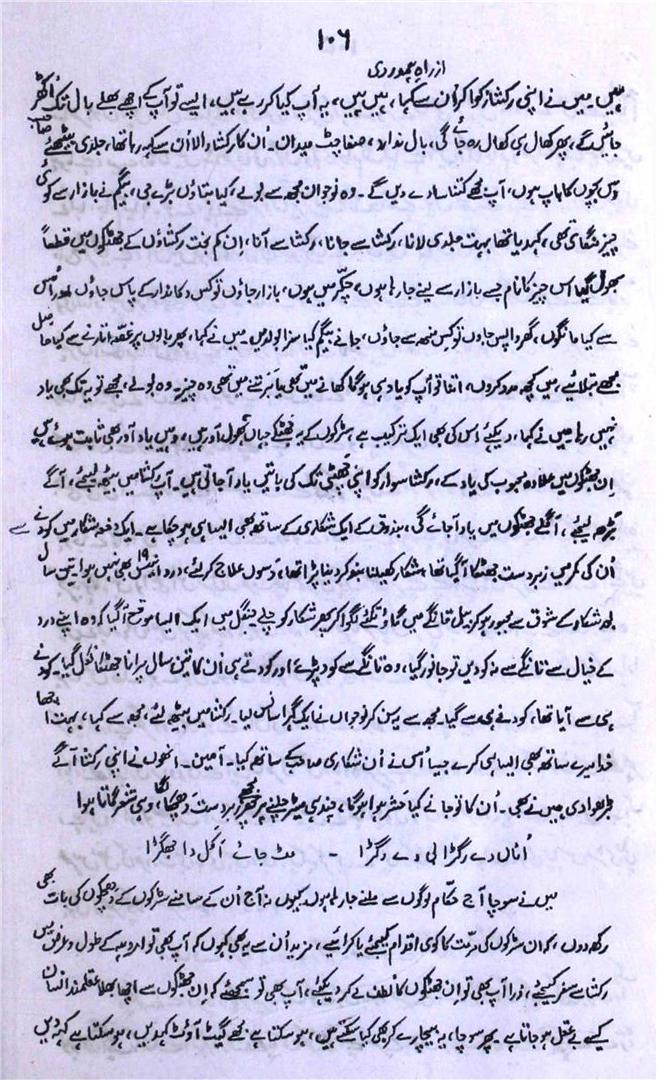 ۱۰۶
از راہِ ہمدردی
ہیں میں نے اپنی رکشا رکوا کر اُن سے کہا، ہیں ہیں، یہ آپ کیا کر رہے ہیں، ایسے تو آپ کے اچھے بھلے بال تک اُکھڑ
جائیں گے، پھر کھال ہی کھال رہ جائے گی، بال ندارد، صفا چٹ میدان۔ اُن کا رکشا والا اُن سے کہہ رہا تھا، جلدی بیٹھئے صاحب
دس بچوں کا باپ ہوں، آپ مجھے کتنا سا دے دیں گے۔ وہ نوجوان مجھ سے بولے، کیا بتاؤں بڑے میں، بیگم نے بازار سے کوئی
چیز منگائی تھی، کہہ دیا تھا بہت جلدی لانا، رکشا سے جانا، رکشا سے آنا، ان کم بخت رکشاؤں کے جھٹکوں میں قطعاً
بھول گیا اس چیز کا نام جسے بازار سے لینے جا رہا ہوں، چکّر میں ہوں، بازار جاؤں تو کس دکاندار کے پاس جاؤں اور اُس
سے کیا مانگوں، گھر واپس جاؤں تو کس منھ سے جاؤں، جانے بیگم کیا سزا بول دیں۔ میں نے کہا، پھر بالوں پر غصّہ اتارنے سے کیا حاصل
مجھے بتلائیے، میں کچھ مدد کروں، اتنا تو آپ کو یاد ہی ہوگا کھانے میں تھی یا برتنے میں تھی وہ چیز۔ وہ بولے، مجھے تو یہ تک بھی یاد
نہیں رہا میں نے کہا، دیکھئے اس کی بھی ایک ترکیب ہے، سڑکوں کے یہ جھٹکے جہاں بھول آور ہیں، وہیں یاد آور بھی ثابت ہوئے ہیں
اِن جھٹکوں میں علاوہ محبوب کی یاد کے، رکشا سوار کو اپنی چھٹی تک کی باتیں یاد آ جاتی ہیں۔ آپ رکشا میں بیٹھ لیجئے، آگے
بڑھ لیجئے، اگلے جھٹکوں میں یاد آ جائے گی، بندوق کے ایک شکاری کے ساتھ بھی ایسا ہی ہو چکا ہے۔ ایک دفعہ شکار میں کودنے سے
اُن کی کمر میں زبردست جھٹکا آ گیا تھا، شکار کھیلنا بند کر دینا پڑا تھا، دسوں علاج کر لئے، درد اُنیس ۱۹ بھی نہیں ہوا تین سال
بعد شکار کے شوق سے مجبور ہو کر بیل تانگے میں گاؤ تکئے لگوا کر پھر شکار کو چلے جنگل میں ایک ایسا موقع آ گیا کہ وہ اپنے درد
کے خیال سے تانگے سے نہ کودیں تو جانور گیا، وہ تانگے سے کود پڑے اور کودتے ہی اُن کا تین سال پرانا جھٹکا نکل گیا۔ کودنے
ہی سے آیا تھا، کودنے ہی سے گیا۔ مجھ سے یہ سن کر نوجوان نے ایک گہرا سانس لیا۔ رکشا میں بیٹھ لئے، مجھ سے کہا، بہت اچھا
خدا میرے ساتھ بھی ایسا ہی کرے جیسا اُس نے اُن شکاری صاحب کے ساتھ کیا۔ آمین۔ انھوں نے اپنی رکشا آگے
بڑھوا دی میں نے بھی۔ اُن کا تو جانے کیا حشر ہوا ہوگا، چند ہی میٹر چلنے پر مجھے پھر زبردست دھچکا لگا، وہی شعر گاتا ہوا
اُناں دے رگڑا لی دے رگڑا ۔ مٹ جائے اَکّل دا جھگڑا
میں نے سوچا آج حکّام لوگوں سے ملنے جا رہا ہوں، کیوں نہ آج اُن کے سامنے سڑکوں کے دھچکوں کی بات بھی
رکھ دوں، کہ ان سڑکوں کی مرمّت کا کوئی اقدام کیجئے یا کرائیے، مزید اُن سے یہ بھی کہوں کہ آپ بھی تو امروہہ کے طول و عرض میں
رکشا سے سفر کیجئے، ذرا آپ بھی تو اِن جھٹکوں کا لطف لے کر دیکھئے، آپ بھی تو سمجھئے کہ اِن جھٹکوں سے اچھا بھلا عقلمند انسان
کیسے بے عقل ہو جاتا ہے۔ پھر سوچا، یہ بیچارے کر بھی کیا سکتے ہیں، ہو سکتا ہے مجھے گیٹ آوٹ کہہ دیں، ہو سکتا ہے کہہ دیں